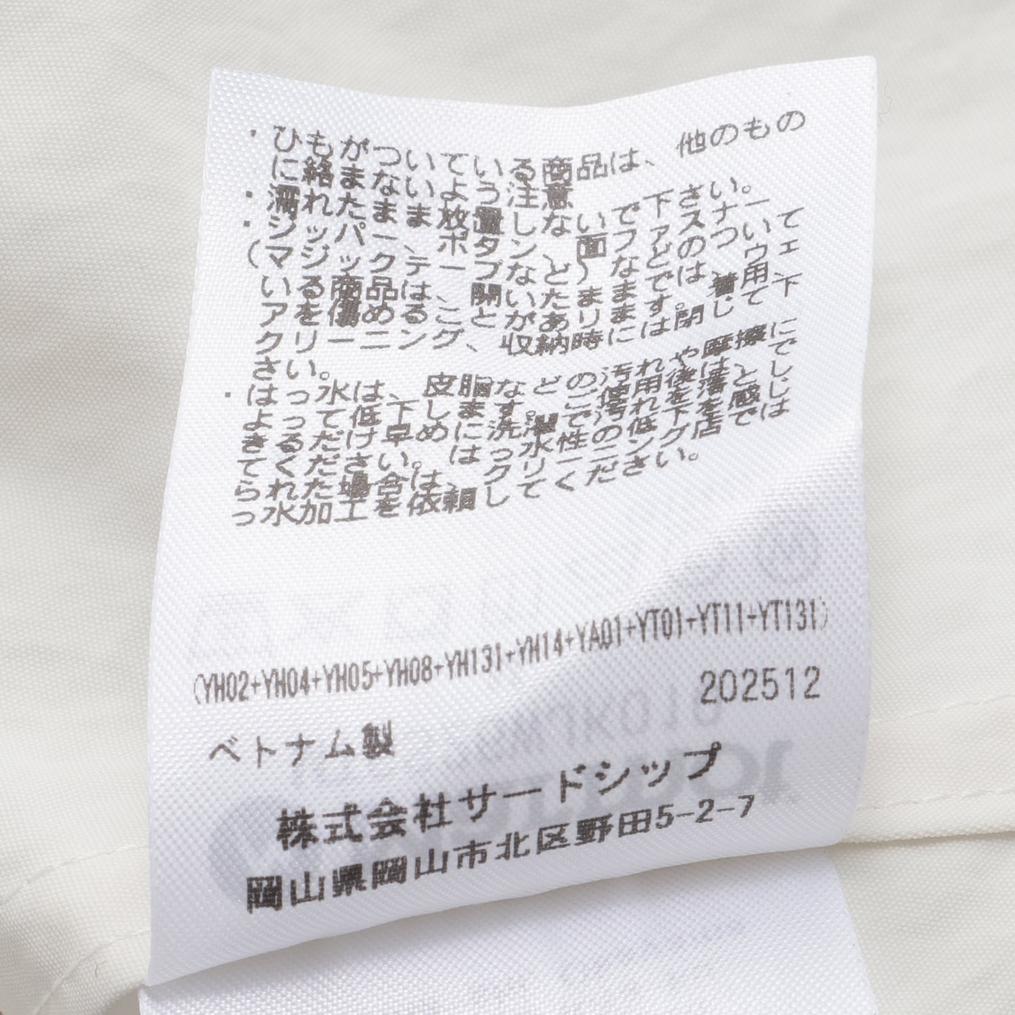 ・ひもがついている商品は、他のもの
に絡まないよう注意
・濡れたまま放置しないで下さい。
・ジッパー、ボタン、面ファスナー
(マジックテープなど)などのついて
いる商品は、開いたままでは、ウェ
アを傷めることがあります。着用、
クリーニング、収納時には閉じて下
さい。
・はっ水は、皮脂などの汚れや摩擦に
よって低下します。ご使用後は、で
きるだけ早めに洗濯で汚れを落とし
てください。はっ水性の低下を感じ
られた場合は、クリーニング店では
っ水加工を依頼してください。
(YH02+YH04+YH05+YH08+YH131+YH14+YA01+YT01+YT11+YT131)
202512
ベトナム製
株式会社サードシップ
岡山県岡山市北区野田5-2-7